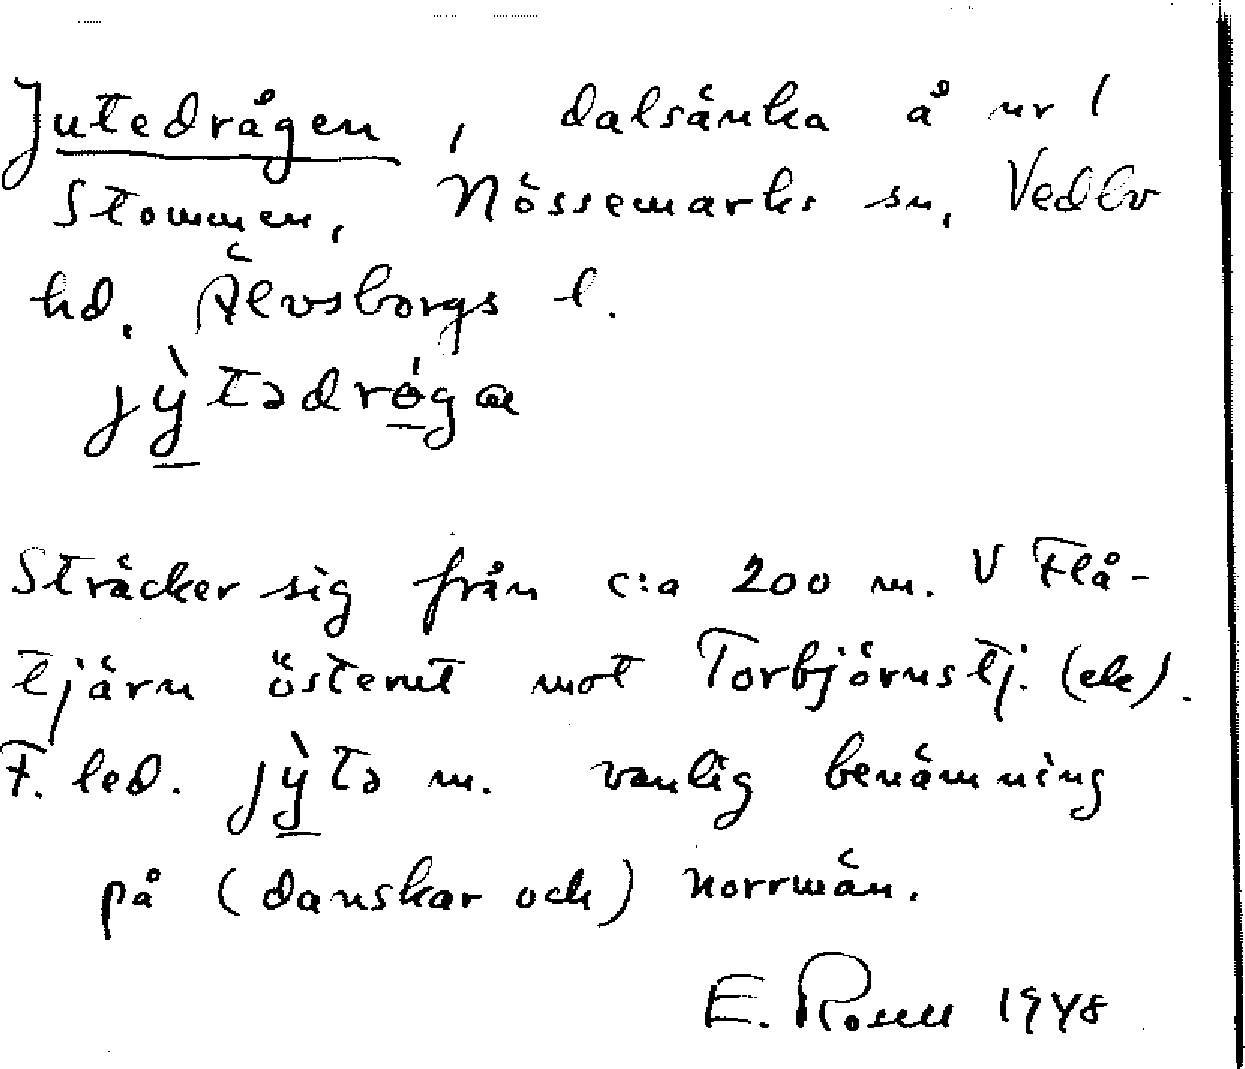 Jutedrågen, dalsänka å nr 1
Stommen, Nössemarks sn, Vedbo
hd. Älvsborgs l.
jỳtədrógæ
Sträcker sig från c:a 200 m. V Flå-
tjärn österut mot Torbjörnstj. (ek).
F. led. jỳtə m. vanlig benämning
på (danskar och) norrmän.
E. Rosell 1948